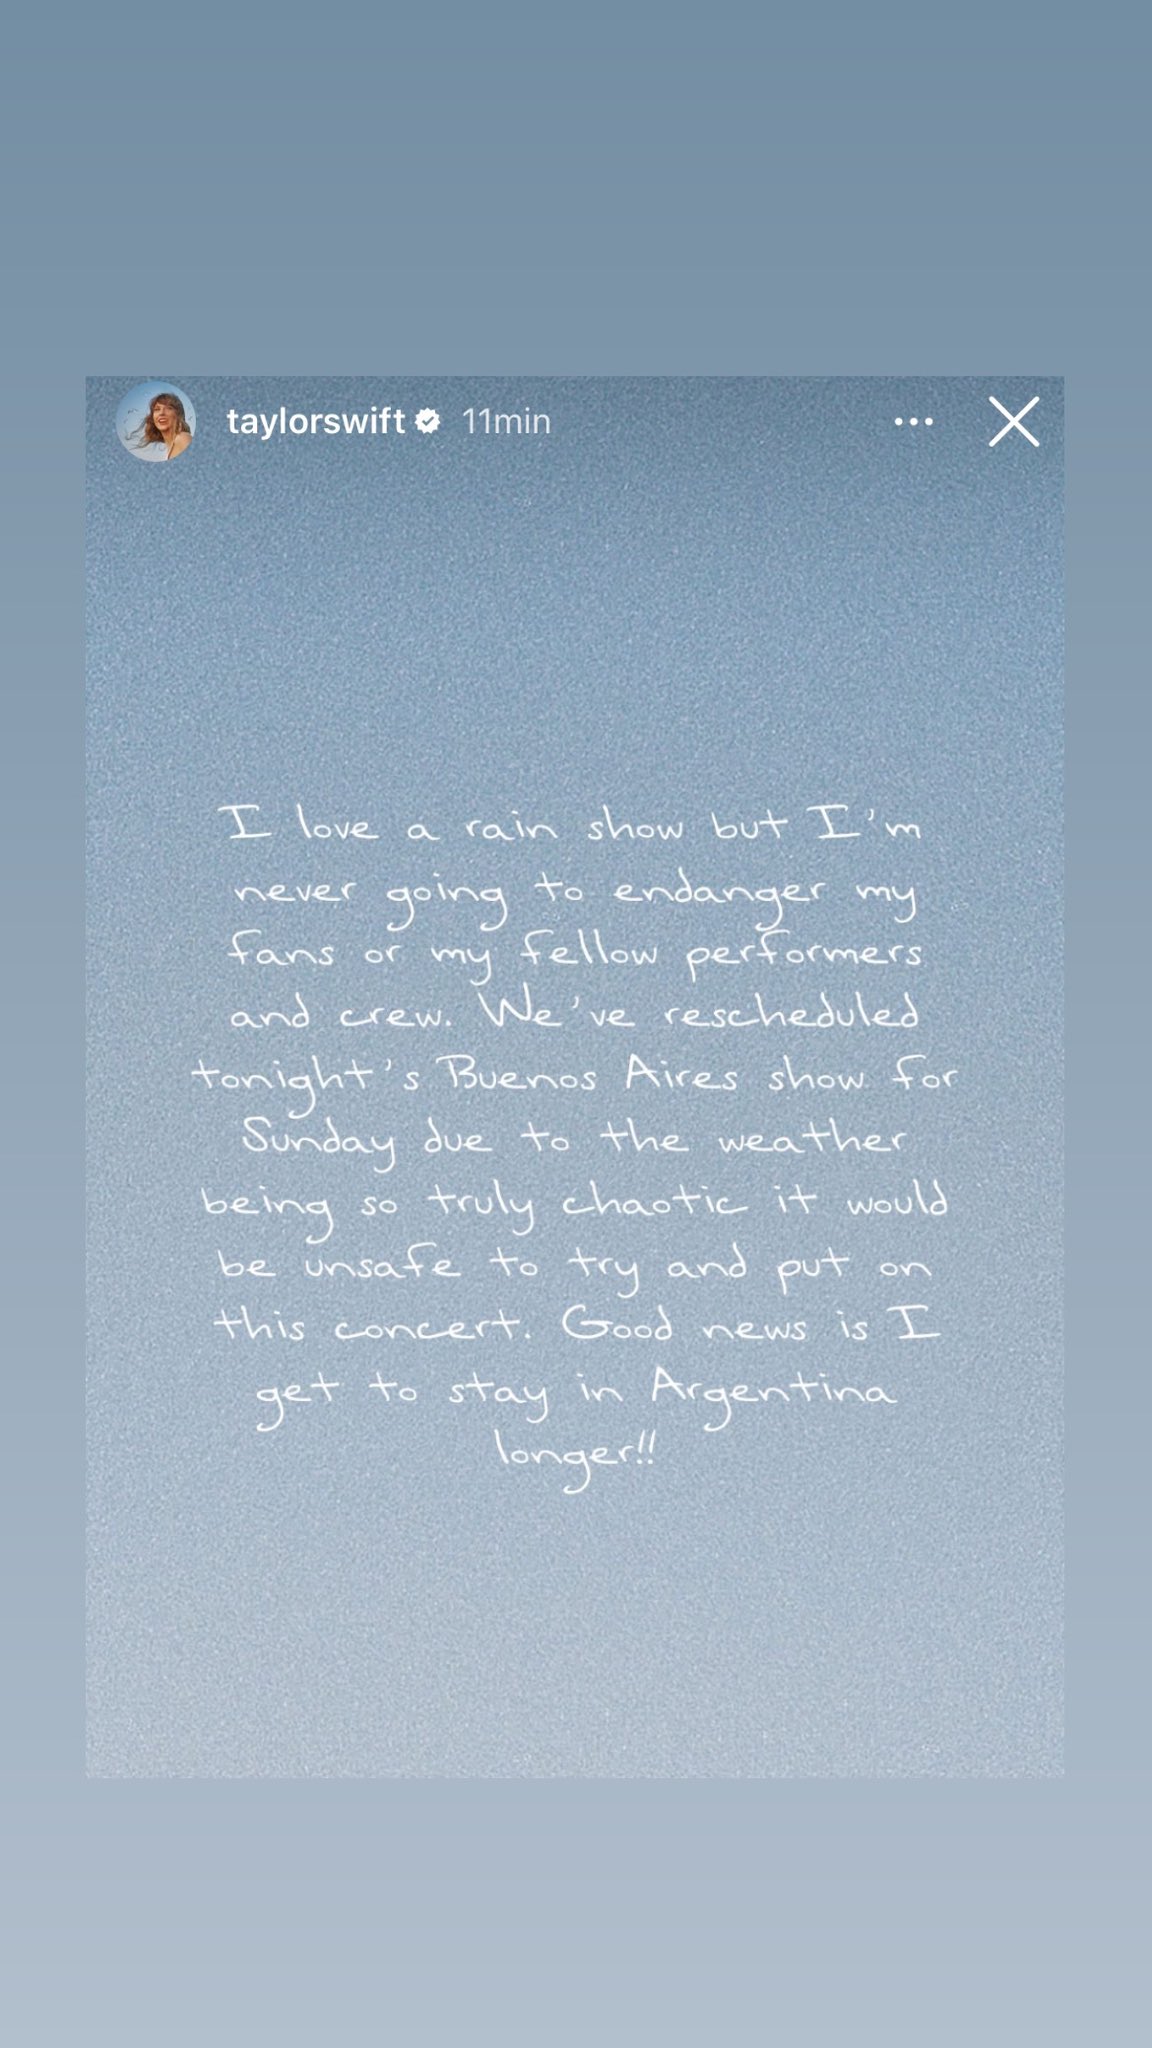 taylorswift 11min
I love a rain show but I'm
never going to endanger my
fans or my fellow performers
and crew. We've rescheduled
tonight's Buenos Aires show for
Sunday due to the weather
being so truly chaotic it would
be unsafe to try and put on
this concert. Good news is I
get to stay in Argentina
longer!!